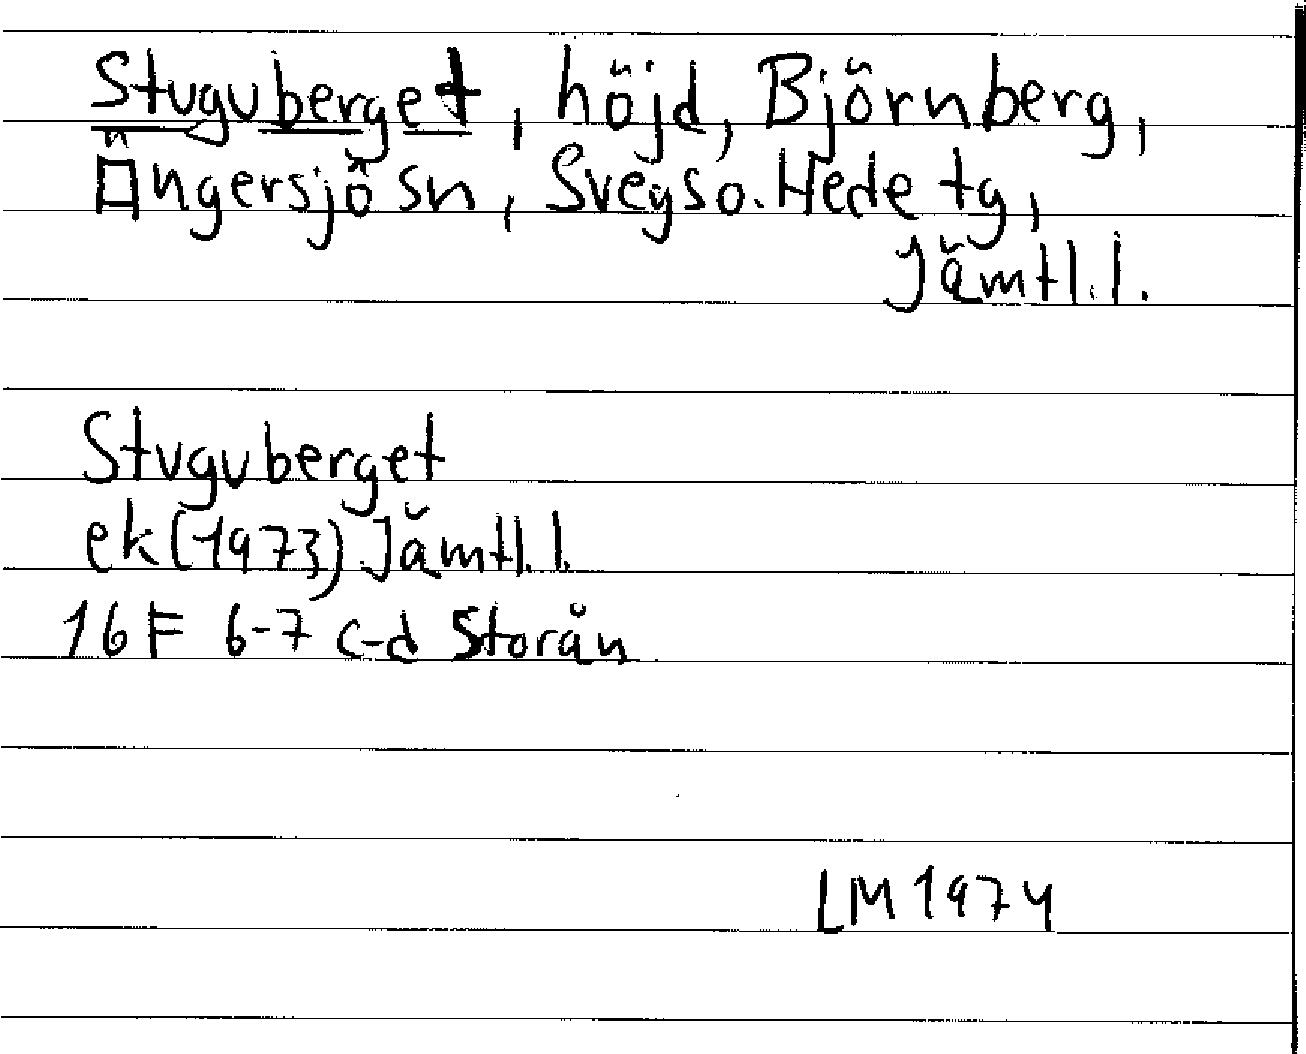 Stuguberget, höjd, Björnberg,
Ängersjö sn, Svegs o. Hede tg,
Jämtl. l.
Stuguberget
ek (1973) Jämtl. l.
16 F 6-7 c-d Storån
LM 1974